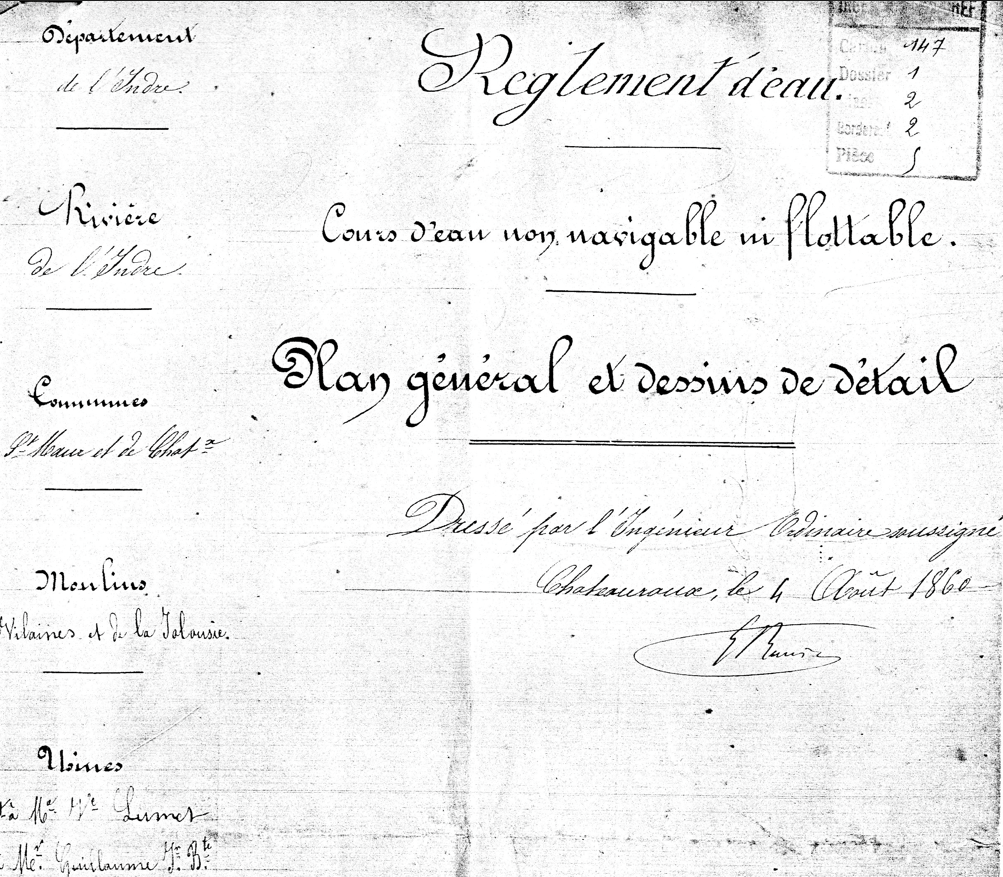 Département
de l'Indre.
Rivière
de l'Indre.
Communes
St Maur et de Chatx
Moulins
Vilaines et de la Jalousie.
Usines
à Mme Vve Lumet
Mr. Guillaume J. Bte
Reglement d'eau.
Cours d'eau non navigable ni flottable.
Plan général et dessins de détail
Dressé par l'Ingénieur Ordinaire soussigné
Chateauroux, le 4 Août 1860
147
Dossier 1
2
Bordereau 2
Pièce 5